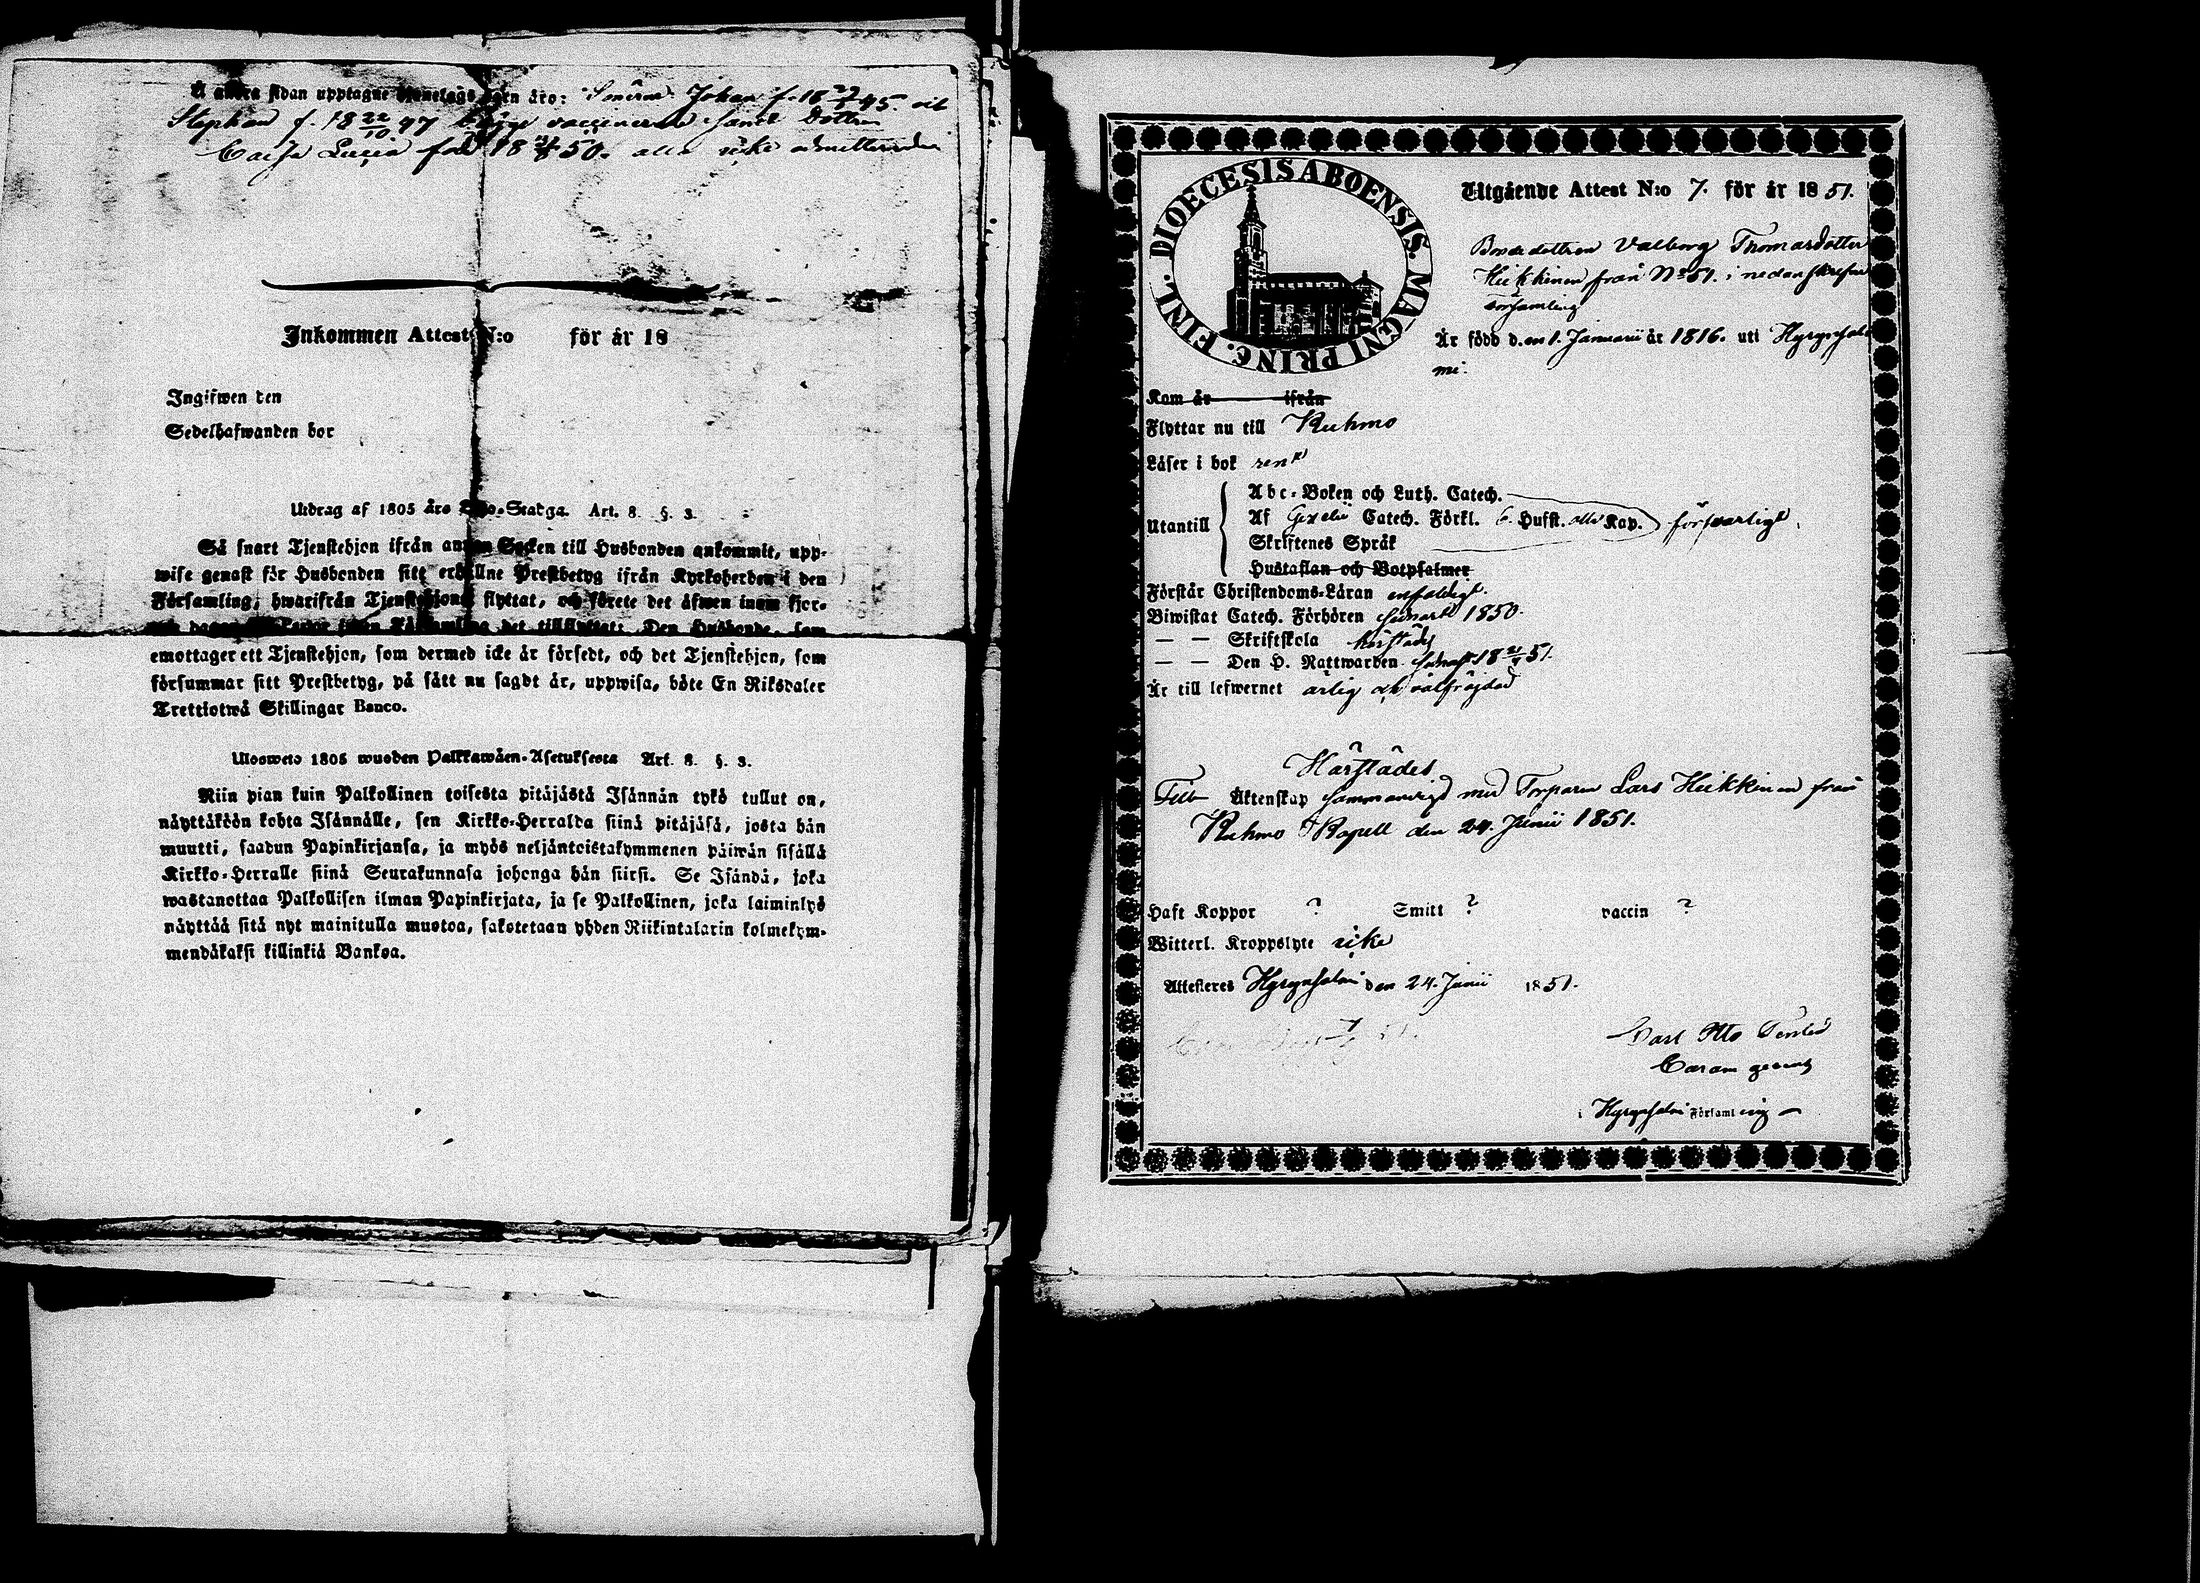 Å andra sidan upptagne äkenskaps barn äro: Sönerne Johan f. 18 45. och
Stephan f. 18 22/10 47 begge vaccinerade samt Dottren
Caisa Lucia född 18 50. alla icke admitterade
Inkommen Attest N:o för år 18
Ingifwen den
Sedelhafwanden bor
Utdrag af 1805 års Lego-Stadga. Art. 8. §. 3.
Så snart Tjenstehjon ifrån annan Socken till Husbonden ankommit, upp-
wise genast för Husbonden sitt erhållne Prestbetyg ifrån Kyrkoherden i den
Församling, hwarifrån Tjenstehjonet flyttat, och förete det äfwen inom fjor-
ton dagar för Kyrkoherden i den Församling det tillflyttat: Den Husbonde, som
emottager ett Tjenstehjon, som dermed icke är försedt, och det Tjenstehjon, som
försummar sitt Prestbetyg, på sätt nu sagdt är, uppwisa, böte En Riksdaler
Trettiotwå Skillingar Banco.
Ulosweto 1805 wuoden Palkkawäen-Asetuksesta Art. 8. §. 3.
Niin pian kuin Palkollinen toisesta pitäjästä Isännän tykö tullut on,
näyttäköön kohta Isännälle, sen Kirkko-Herralda siinä pitäjäsä, josta hän
muutti, saadun Papinkirjansa, ja myös neljäntoistakymmenen päiwän sisällä
Kirkko-Herralle siinä Seurakunnasa johonga hän siirsi. Se Isändä, joka
wastanottaa Palkollisen ilman Papinkirjata, ja se Palkollinen, joka laiminlyö
näyttää sitä nyt mainitulla muotoa, sakotetaan yhden Riikintalarin kolmekym-
mendäkaksi killinkiä Bankoa.
DIOECESIS ABOENSIS. MAGNI PRINC. FINL.
Utgående Attest N:o 7. för år 1851.
Bondedottren Valborg Thomasdotter
Heikkinen från No 51. i nedanskrefne
Församling
Är född den 1. Januarii år 1816. uti Hyrynsal-
mi.
Kom år ifrån
Flyttar nu till Kuhmo
Läser i bok rent
Abc-Boken och Luth. Catech.
Utantill Af Gezelii Catech. Förkl. 6. Hufst. alla Kap. försvarligt.
Skriftenes Språk
Hustaflan och Botpsalmer
Förstår Christendoms-Läran enfaldigt.
Biwistat Catech. Förhören senast 1850.
— — Skriftskola härstädes
— — Den H. Nattwarden senast 18 51.
Är till lefwernet ärlig och välfrägdad
Härstädes
Till Äktenskap sammanvigd med Torparen Lars Heikkinen från
Kuhmo Kapell den 24. Junii 1851.
Haft Koppor ? Smitt ? vaccin ?
Witterl. Kroppslyte icke
Attesteres Hyrynsalmi den 24. Junii 1851.
Carl Otto
Hyrynsalmi Församling